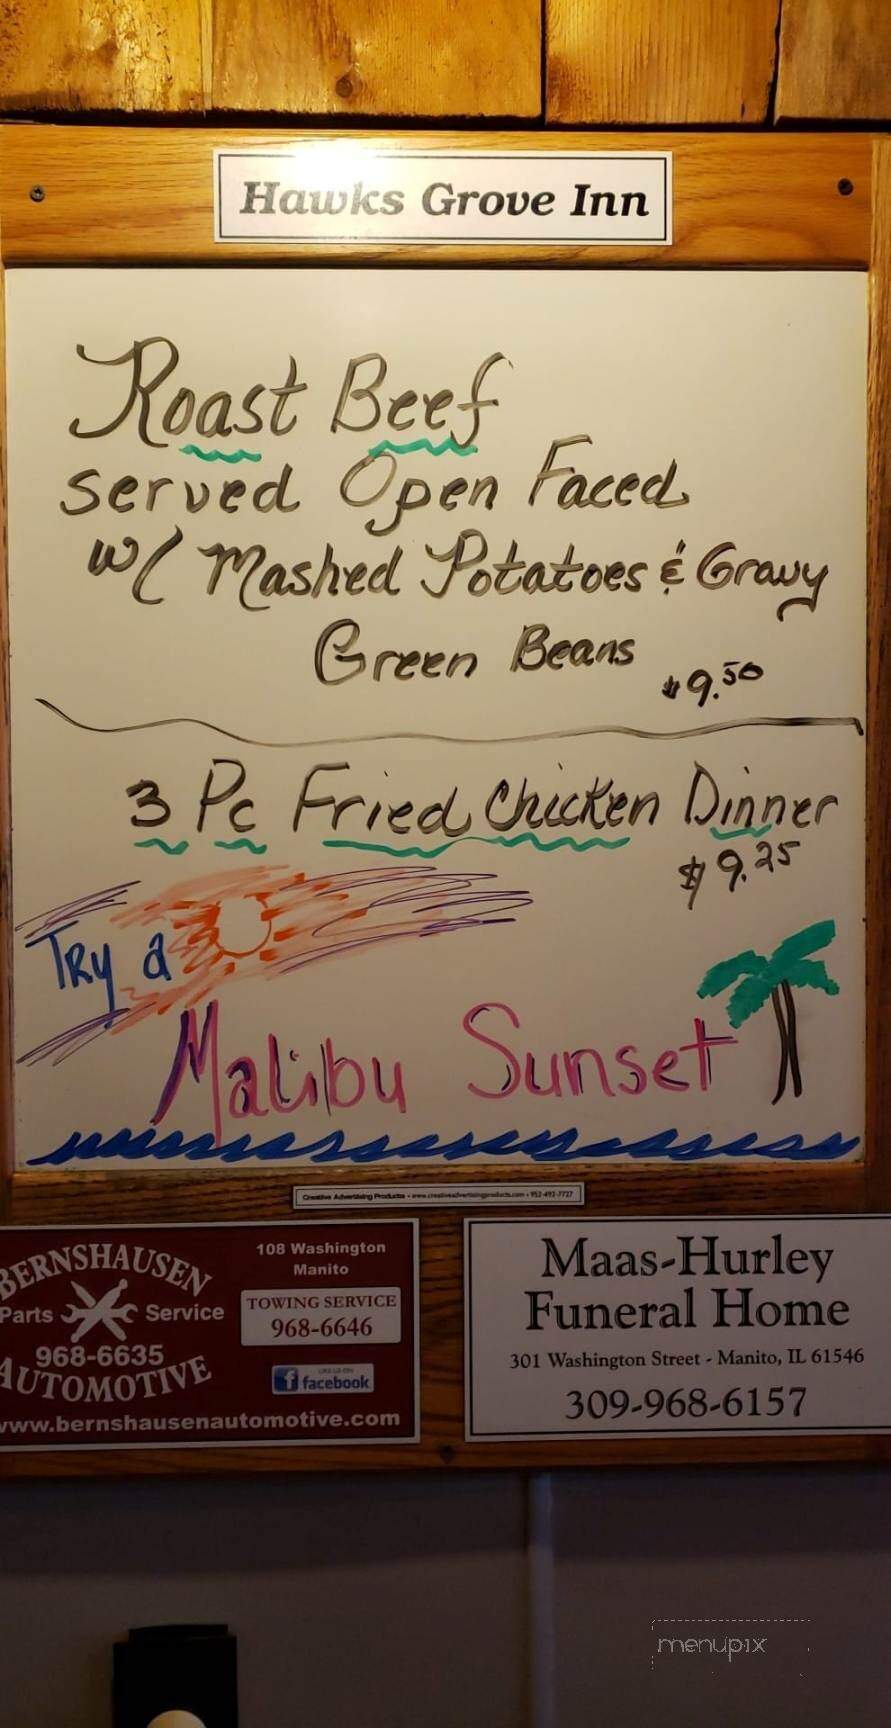 Hawks Grove Inn
Roast Beef
served Open Faced
w/ Mashed Potatoes & Gravy
Green Beans
$9.50
3 Pc Fried Chicken Dinner
$9.25
Try a
Malibu Sunset
Creative Advertising Products • www.creativeadvertisingproducts.com • 952-492-7727
BERNSHAUSEN
Parts Service
968-6635
AUTOMOTIVE
108 Washington
Manito
TOWING SERVICE
968-6646
LIKE US ON
facebook
www.bernshausenautomotive.com
Maas-Hurley
Funeral Home
301 Washington Street - Manito, IL 61546
309-968-6157
menupix